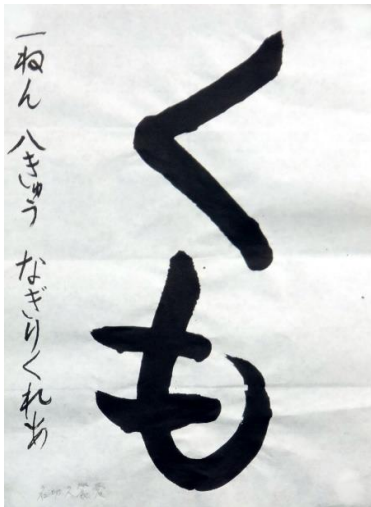 くも
一ねん 八きゅう なぎりくれあ